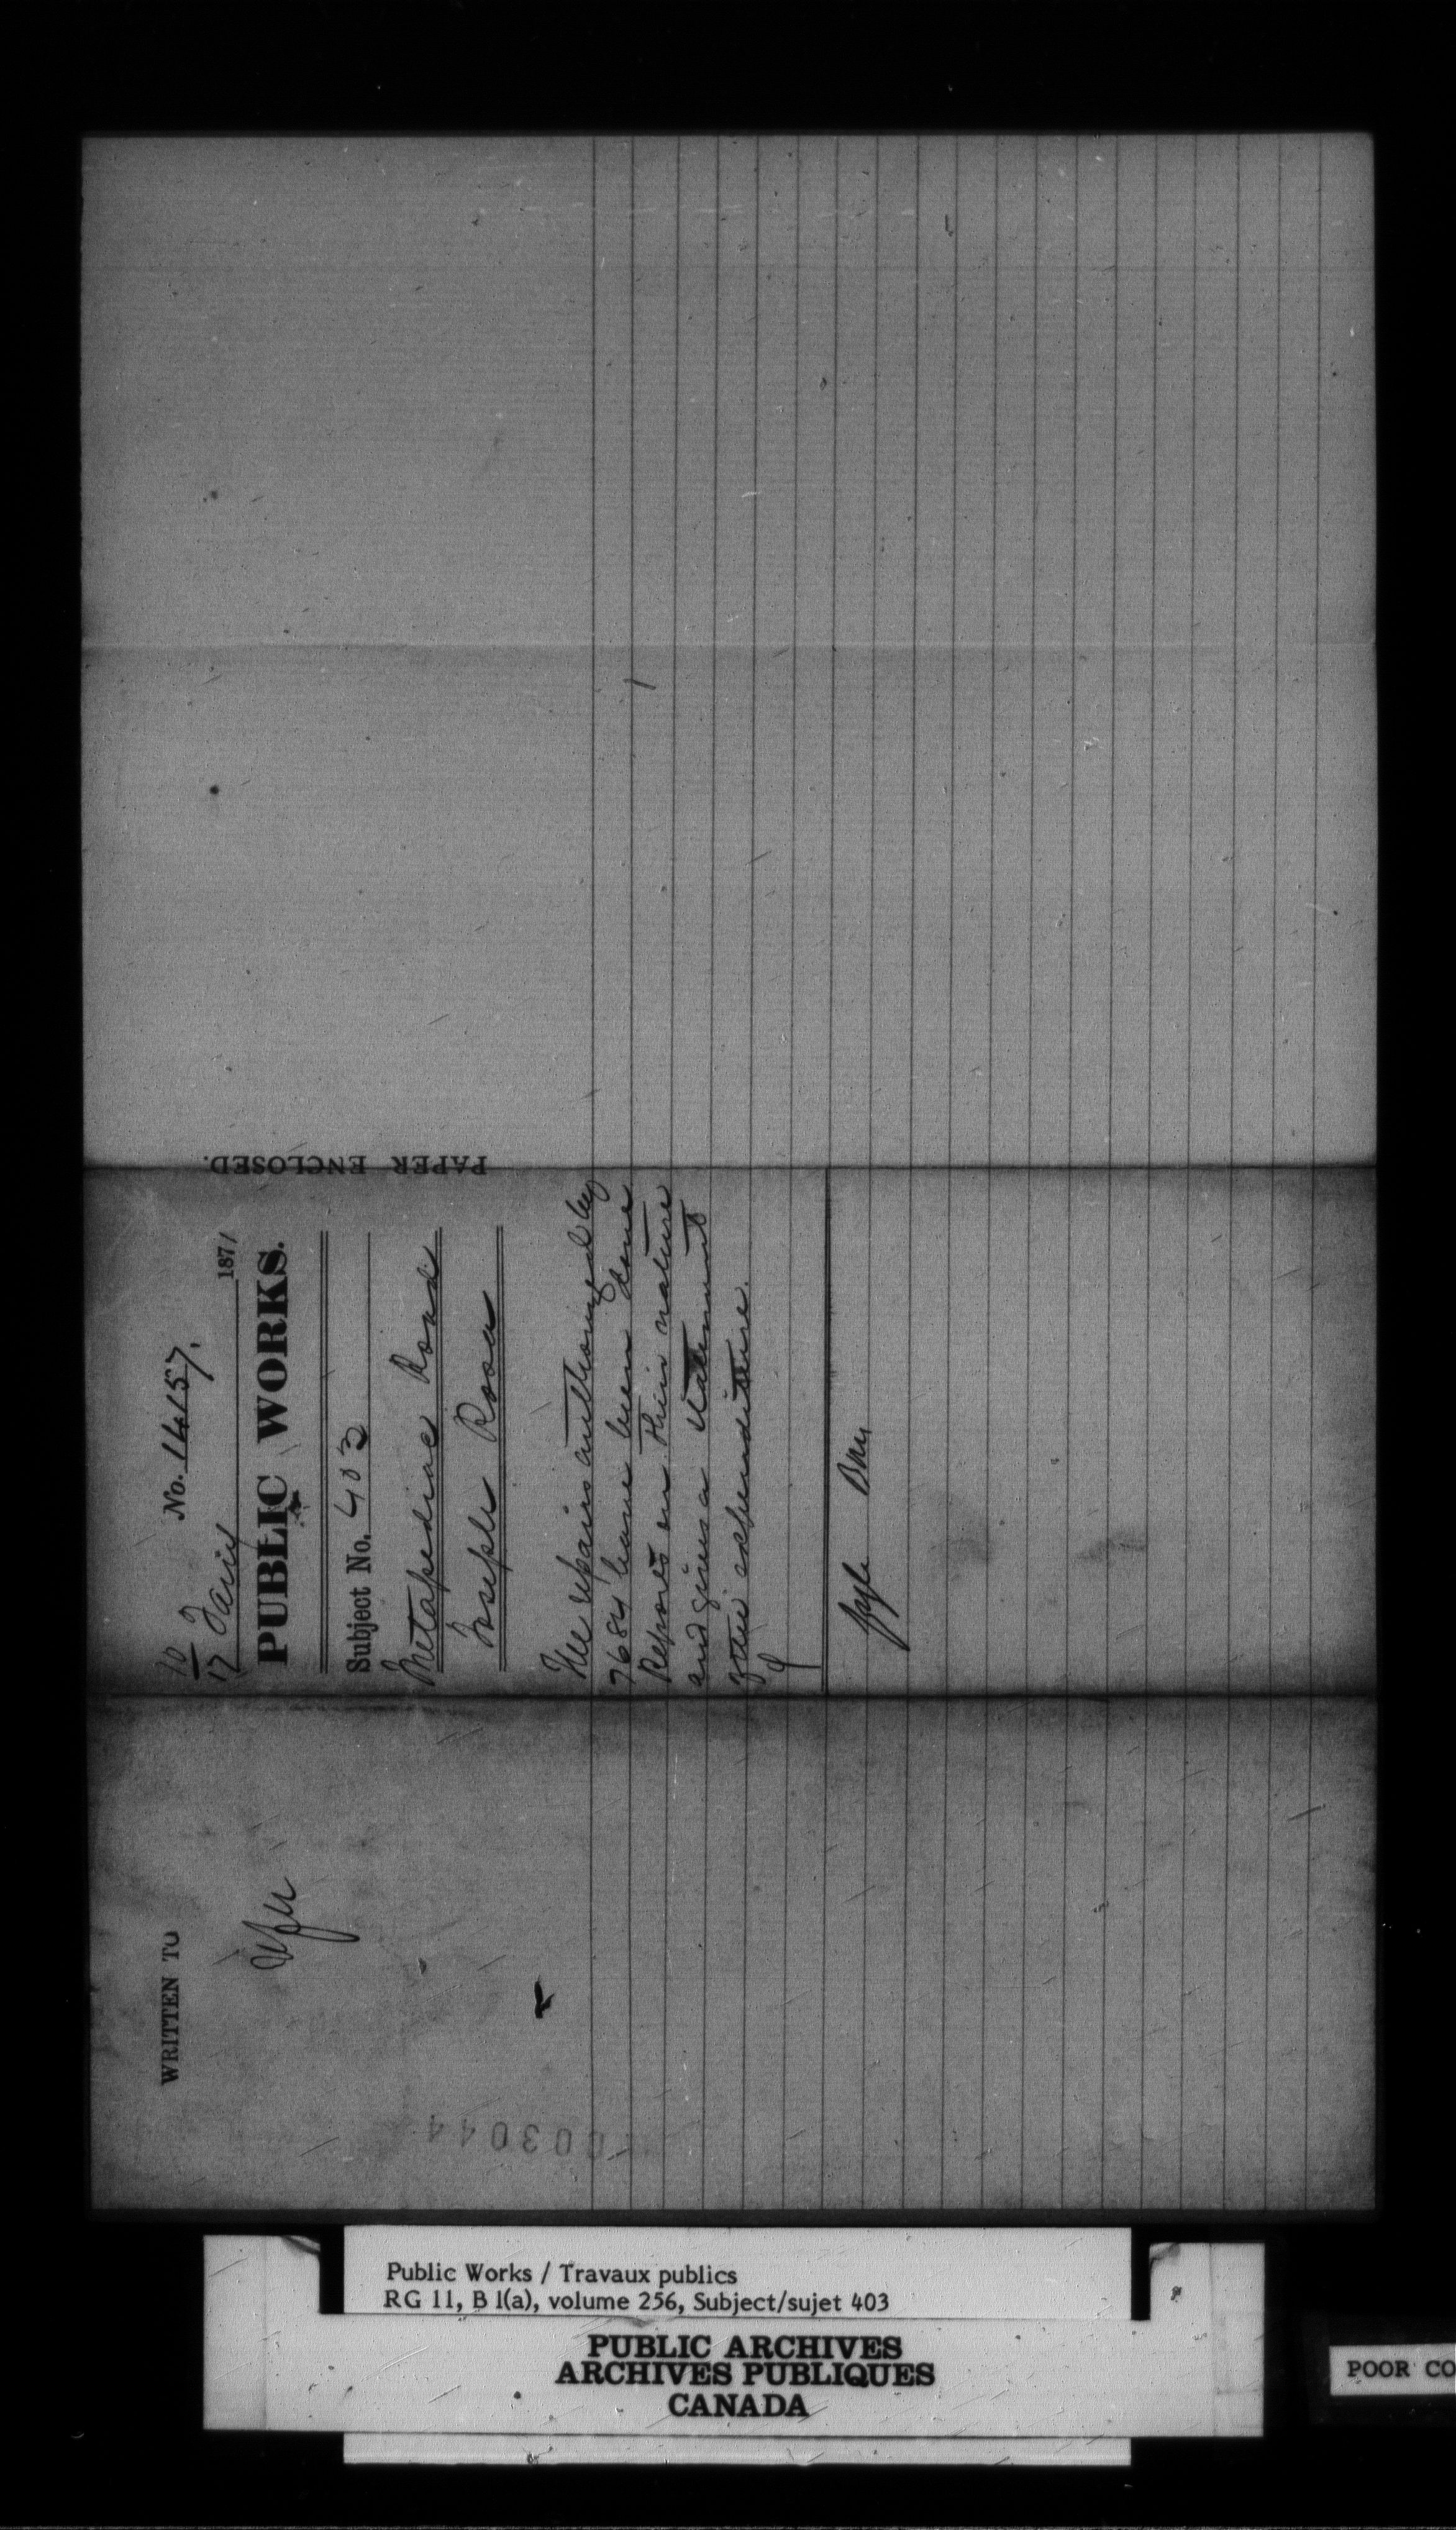 No. 14157.
10
17 Jany 1871
PUBLIC WORKS.
Subject No. 403
Metapediac Road
Joseph Rosa
The repairs authorized by
7684 have been done
Reports on their nature
and gives a statement
of the expenditure.
PAPER ENCLOSED.
WRITTEN TO
003044
Public Works / Travaux publics
RG 11, B 1(a), volume 256, Subject/sujet 403
PUBLIC ARCHIVES
ARCHIVES PUBLIQUES
CANADA
POOR CO